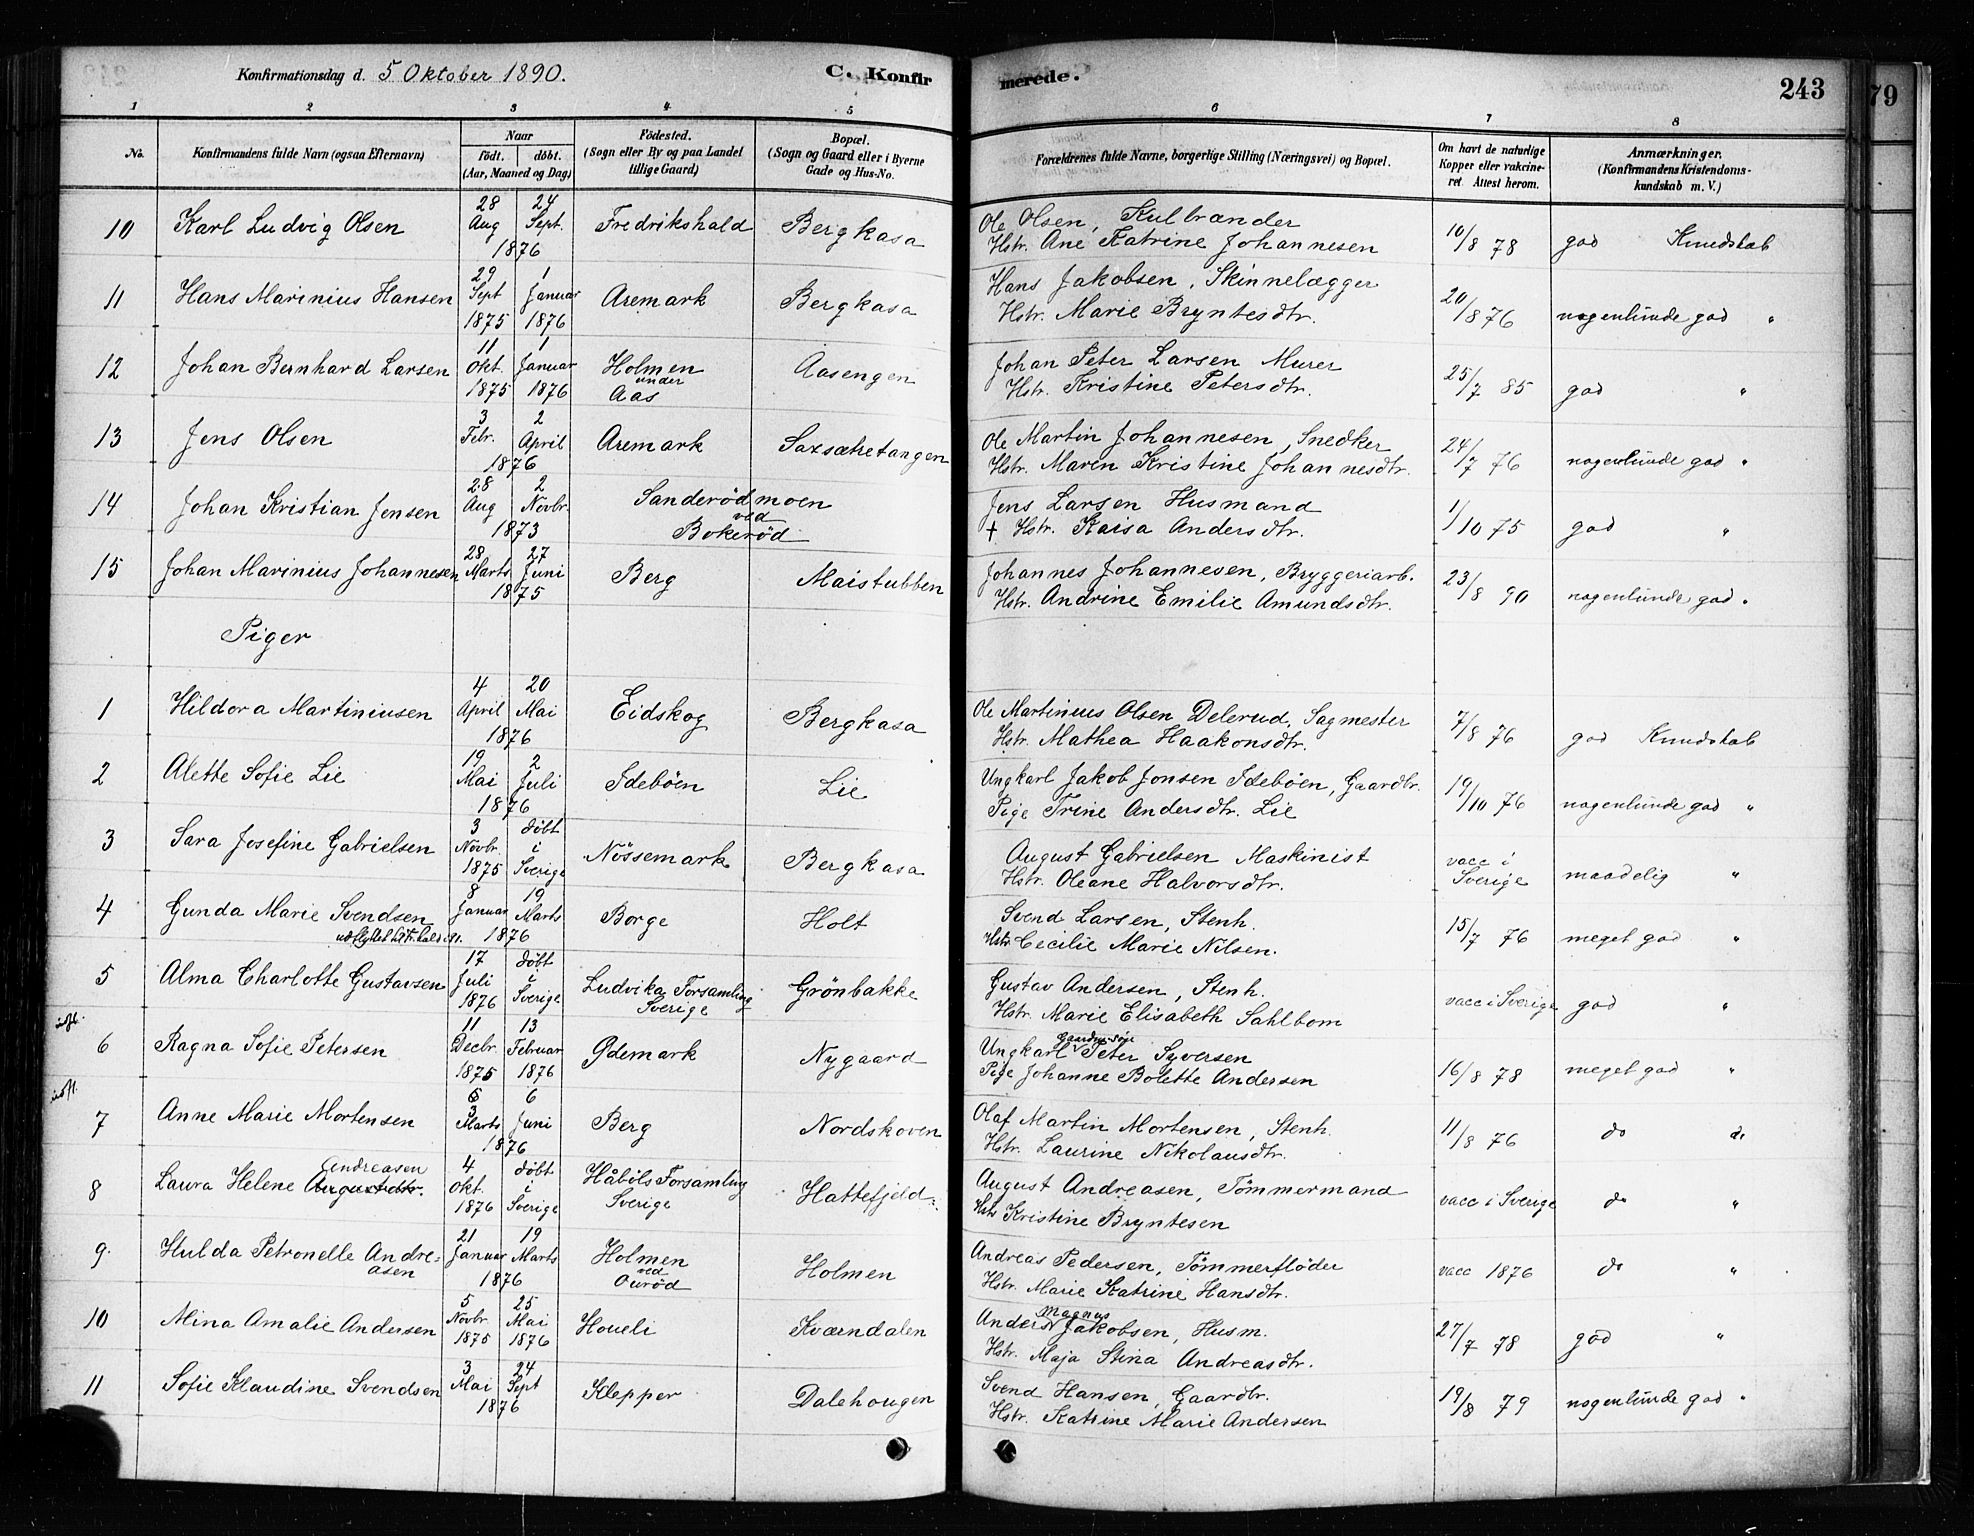 Konfirmationsdag d. 5 Oktober 1890. C. Konfirmerede. 243
79
1 2 3 4 5 6 7 8
No. Konfirmandens fulde Navn (ogsaa Efternavn) Naar födt. döbt. (Aar, Maaned og Dag) Födested. (Sogn eller By og paa Landet tillige Gaard) Bopæl. (Sogn og Gaard eller i Byerne Gade og Hus-No. Forældrenes fulde Navne, borgerlige Stilling (Næringsvei) og Bopæl. Om havt de naturlige Kopper eller vakcineret. Attest herom. Anmærkninger. (Konfirmandens Kristendomskundskab m. V.)
10 Karl Ludvig Olsen 28 Aug 24 Sept. 1876 Fredrikshald Bergkasa Ole Olsen, Kulbrænder Hstr. Ane Katrine Johannesen 10/8 78 god Kundskab
11 Hans Marinius Hansen 29 Sept 1875 1 Januar 1876 Aremark Bergkasa Hans Jakobsen, Skinnelægger Hstr. Marie Bryntesdtr. 20/8 76 nogenlunde god "
12 Johan Bernhard Larsen 11 Okt. 1875 1 Januar 1876 Holmen under Aas Aasengen Johan Peter Larsen Murer Hstr. Kristine Petersdtr. 25/7 85 god "
13 Jens Olsen 3 Febr. 2 April 1876 Aremark Saxsætretangen Ole Martin Johannesen, Snedker Hstr. Maren Kristine Johannesdtr. 24/7 76 nogenlunde god "
14 Johan Kristian Jensen 28 Aug 2 Novbr. 1873 Sanderödmoen ved Bokeröd Jens Larsen Husmand + Hstr. Kaisa Andersdtr. 1/10 75 god "
15 Johan Marinius Johannesen 28 Marts 27 Juni 1875 Berg Maistubben Johannes Johannesen, Bryggeriarb. Hstr. Andrine Emilie Amundsdtr. 23/8 90 nogenlunde god "
Piger
1 Hildora Martiniusen 4 April 20 Mai 1876 Eidskog Bergkasa Ole Martinius Olsen Delerud, Sagmester Hstr. Mathea Haakonsdtr. 7/8 76 god Kundskab
2 Alette Sofie Lie 19 Mai 2 Juli 1876 Idebøen Lie Ungkarl Jakob Jonsen Idebøen, Gaardbr. Pige Trine Andersdtr. Lie 19/10 76 nogenlunde god "
3 Sara Josefine Gabrielsen 3 Novbr. 1875 döbt i Sverige Nössemark Bergkasa August Gabrielsen Maskinist Hstr. Oleane Halvorsdtr. vacc i Sverige maadelig "
4 Gunda Marie Svendsen 8 Januar 19 Marts 1876 Borge Holt Svend Larsen, Stenh. Hstr. Cecilie Marie Nilsen. 15/7 76 meget god "
5 Alma Charlotte Gustavsen 17 Juli 1876 döbt i Sverige Ludvika Forsamling Sverige Grönbakke Gustav Andersen, Stenh. Hstr. Marie Elisabeth Sahlbom vacc i Sverige god "
indfl. 6 Ragna Sofie Petersen 11 Decbr. 1875 13 Februar 1876 Ødemark Nygaard Ungkarl Peter Syversen Pige Johanne Bolette Andersen 16/8 78 meget god "
indfl. 7 Anne Marie Mortensen Marts 6 Juni 1876 Berg Nordskoven Olaf Martin Mortensen, Stenh. Hstr. Laurine Nikolausdtr. 11/8 76 do do
8 Laura Helene Augustdtr. Andreasen 4 Okt. 1876 döbt i Sverige Håböls Forsamling Sverige Hattefjeld August Andreasen, Tömmermand Hstr Kristine Bryntesen vacc i Sverige do "
9. Hulda Petronelle Andreasen 21 Januar 19 Marts 1876 Holmen ved Ouröd Holmen Andreas Pedersen, Tömmerflöder Hstr. Marie Katrine Hansdtr. vacc 1876 do "
10 Mina Amalie Andersen 5 Novbr. 1875 25 Mai 1876 Houeli Kværndalen Anders Magnus Jakobsen, Husm. Hstr. Maja Stina Andreasdtr. 27/7 78 god "
11 Sofie Klaudine Svendsen 3 Mai 24 Sept 1876 Klepper Dalehougen Svend Hansen, Gaardbr. Hstr. Katrine Marie Andersen 19/8 79 nogenlunde god "